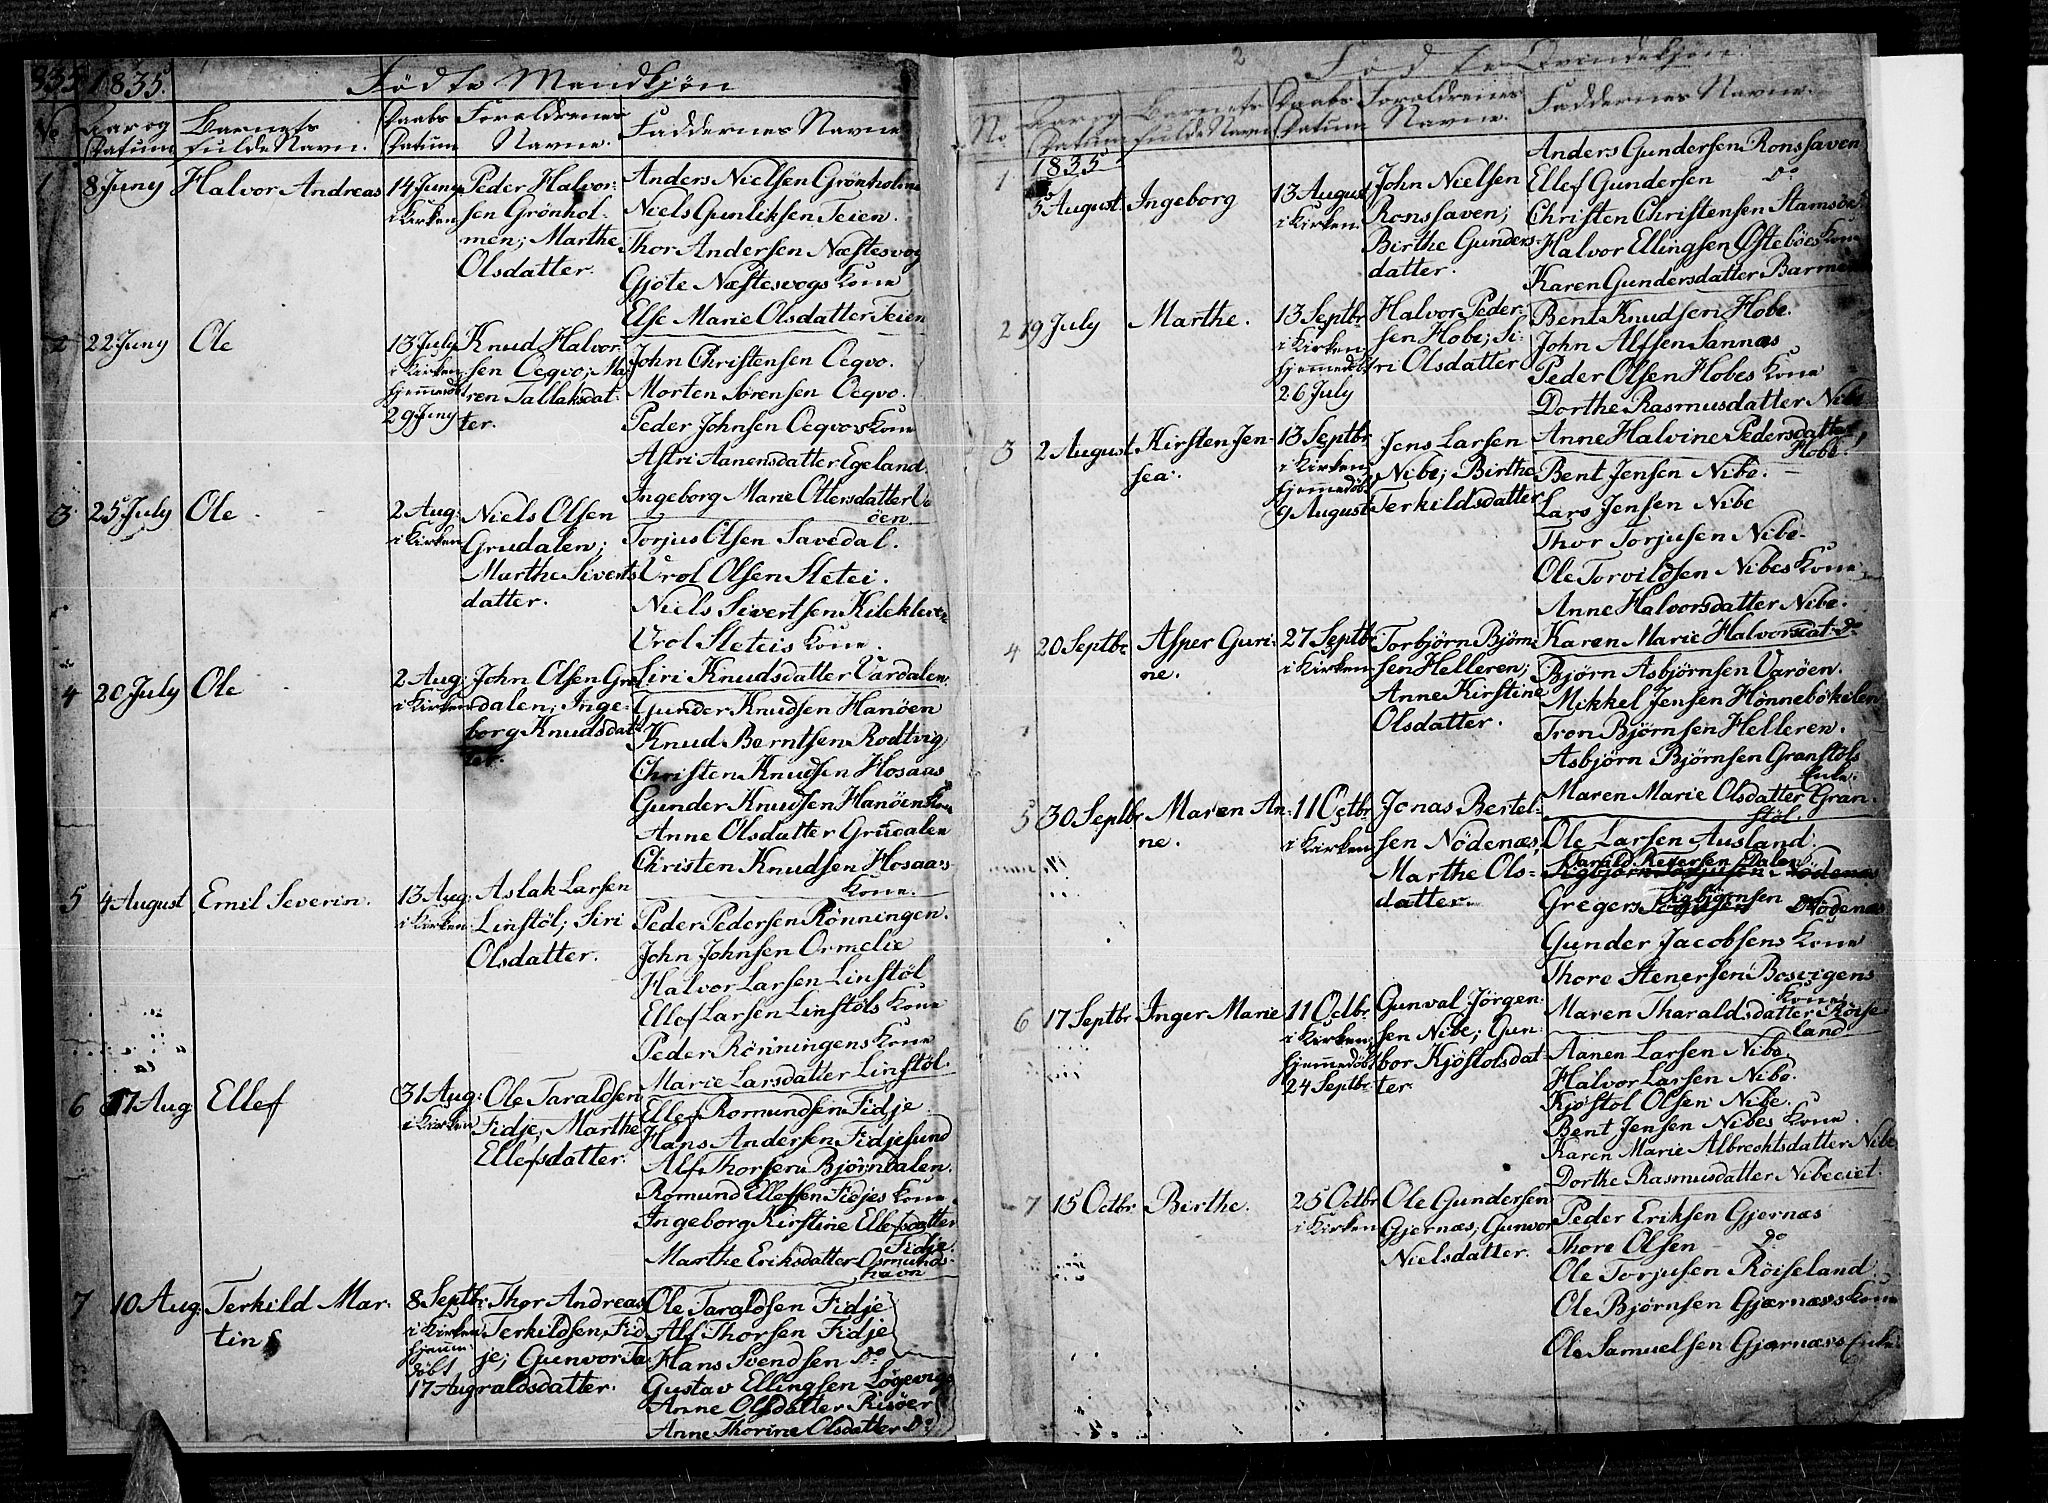 1835.
Fødte Mandkjøn
No
Aar og Datum
Barnets fulde Navn.
Daabs Datum
Foreldrenes Navne.
Faddernes Navne
1
8 Juny
Halvor Andreas
14 Juny
i Kirken
Peder Halvor-
sen Grönhol-
men; Marthe
Olsdatter.
Anders Nielsen Grönholmen
Niels Gunliksen Teien.
Thor Andersen Næstesvog
Gjöte Næstesvogs Kone
Else Marie Olsdatter Teien
2
22 Juny
Ole
13 July
i Kirken;
hjemmedöbt
29 Juny
Knud Halvor-
sen Oeqvo; Ma-
ren Tallaksdat-
ter.
John Christensen Oeqvo.
Morten Sørensen Oeqvo.
Peder Johnsen Oeqvos Kone
Astri Aanensdatter Egeland.
Ingeborg Marie Ottersdatter
öen
3
25 July
Ole
2 Aug:
i Kirken
Niels Olsen
Grudalen;
Marthe Siverts
datter.
Torjus Olsen Savedal.
Vrol Olsen Stetei.
Niels Sivertsen Kileklev
Vrol Steteis Kone.
Siri Knudsdatter Vardalen.
4
20 July
Ole
2 Aug:
i Kirken
John Olsen Gru
dalen; Inge-
borg Knudsdat
ter.
Gunder Knudsen Hanöen
Knud Berntsen Rodtvig
Christen Knudsen Hosaas
Gunder Knudsen Hanöens Kone
Anne Olsdatter Grudalen
Christen Knudsen Hosaas
Kone.
5
4 August
Emil Severin.
13 Aug:
i Kirken
Aslak Larsen
Linstöl; Siri
Olsdatter.
Peder Pedersen Rönningen.
John Johnsen Ormelie
Halvor Larsen Linstöl
Ellef Larsen Linstöls Kone
Peder Rönningens Kone
Marie Larsdatter Linstöl.
6
17 Aug
Ellef
31 Aug:
i Kirken
Ole Taraldsen
Fidje; Marthe
Ellefsdatter.
Ellef Romundsen Fidje
Hans Andersen Fidjesund
Alf Thorsen Björndalen.
Romund Ellefsen Fidjes Kone.
Ingeborg Kirstine Ellefsdatter
Fidje.
Marthe Eriksdatter Osmunds-
havn
7
10 Aug:
Terkild Mar-
tin
8 Septbr
i Kirken
hjem-
döbt
17 Aug
Thor Andreas
Terkildsen, Fid
je; Gunvor Ta-
raldsdatter.
Ole Taraldsen Fidje
Alf Thorsen Fidje
Hans Svendsen Do
Gustav Ellingsen Logevig
Anne Olsdatter Risöer
Anne Thorine Olsdatter Do
2
Födte Qvindekjön.
No
Aar og Datum
Barnets fulde Navn
Daabs Datum
Foreldrenes Navne.
Faddernes Navne.
1835
1
5 August
Ingeborg
13 August
i Kirken
John Nielsen
Ronshaven;
Birthe Gunders-
datter.
Anders Gundersen Ronshaven
Ellef Gundersen Do
Christen Christensen Stamsöe
Halvor Ellingsen Östeböes Kone
Karen Gundersdatter Barmen
2
19 July
Marthe.
13 Septbr
i Kirken
hjemmedöbt
26 July
Halvor Peder-
sen Hobe; Si-
ri Olsdatter
Bent Knudsen Hobe.
John Alfsen Sannæs
Peder Olsen Hobes Kone
Dorthe Rasmusdatter Nibe
Anne Halvine Pedersdatter
Hobe.
3
2 August
Kirsten Jen-
sea.
13 Septbr
i Kirken
hjemmedöbt
9 August
Jens Larsen
Nibe; Birthe
Terkildsdatter
Bent Jensen Nibe.
Lars Jensen Nibe
Thor Torjusen Nibe.
Ole Torvildsen Nibes Kone
Anne Halvorsdatter Nibe.
Karen Marie Halvorsdat: Do
4
20 Septbr
Asper Guri-
ne.
27 Septbr
i Kirken
Torbjörn Björn
sen Helleren;
Anne Kirstine
Olsdatter.
Björn Asbjörnsen Varöen.
Mikkel Jensen Hönnebökilen
Tron Björnsen Helleren.
Asbjörn Björnsen Granstöls
Enke.
Maren Marie Olsdatter Gran-
stöl.
5
30 Septbr
Maren An-
ne.
11 Octbr
i Kirken
Jonas Bertel-
sen Nödenæs,
Marthe Ols-
datter.
Ole Larsen Ausland.
Harald Reiersen Dalen
Sigbjörnsen
Gregers Nödenæs
Gunder Jacobsens Kone
Thore Stenersen Bosvigens
Kone.
Maren Tharaldsdatter Röise-
land
6
17 Septbr
Inger Marie
11 Octbr.
i Kirken;
hjemmedöbt
24 Septbr.
Gunval Jörgen-
sen Nibe; Gun-
bor Kjöstolsdat
ter.
Aanen Larsen Nibe.
Halvor Larsen Nibe.
Kjöstol Olsen Nibe.
Bent Jensen Nibes Kone.
Karen Marie Albrechtsdatter Nibe.
Dorthe Rasmusdatter Nibeeiet.
7
15 Octbr
Birthe.
25 Octbr
i Kirken
Ole Gundersen
Gjernæs; Gunvor
Nielsdatter.
Peder Eriksen Gjernæs
Thore Olsen Do
Ole Torjusen Röiseland
Ole Björnsen Gjærnæs Kone
Ole Samuelsen Gjernæs Enke.